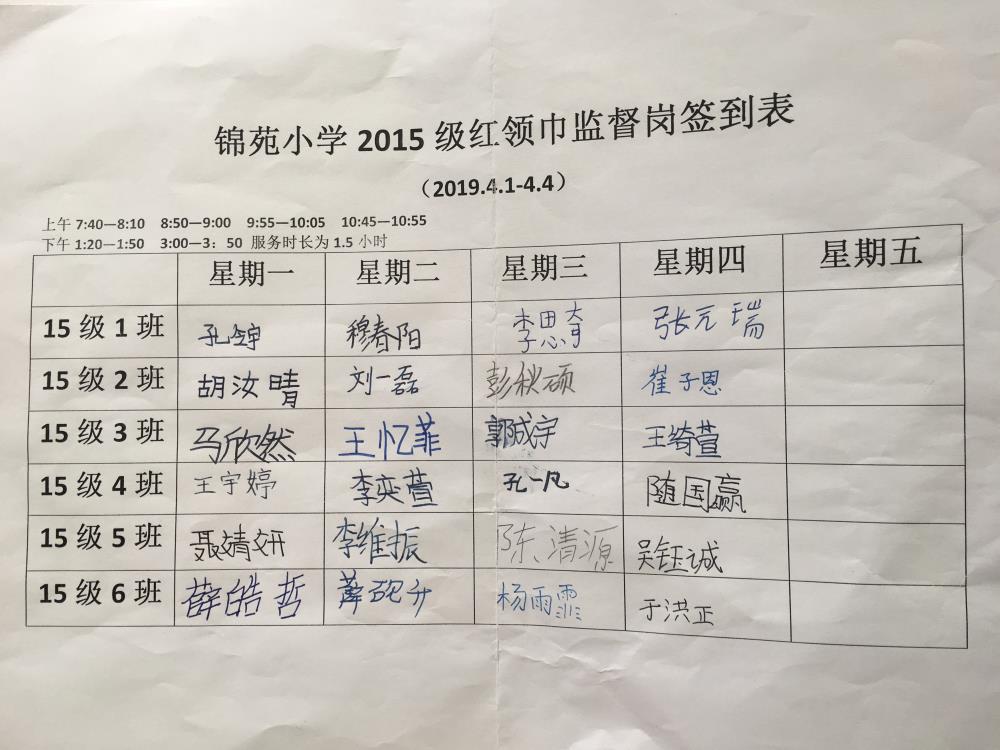 锦苑小学 2015 级红领巾监督岗签到表
（2019.4.1-4.4）
上午 7:40—8:10 8:50—9:00 9:55—10:05 10:45—10:55
下午 1:20—1:50 3:00—3：50 服务时长为 1.5 小时
星期一 星期二 星期三 星期四 星期五
15 级 1 班 穆春阳 李思奇 张元瑞
15 级 2 班 胡汝晴 刘一磊 彭秋硕 崔子恩
15 级 3 班 马欣然 王忆菲 郭成宇 王绮萱
15 级 4 班 王宇婷 李奕萱 孔一凡 随国赢
15 级 5 班 聂婧妍 李维振 陈清源 吴钰诚
15 级 6 班 薛皓哲 杨雨霏 于洪正